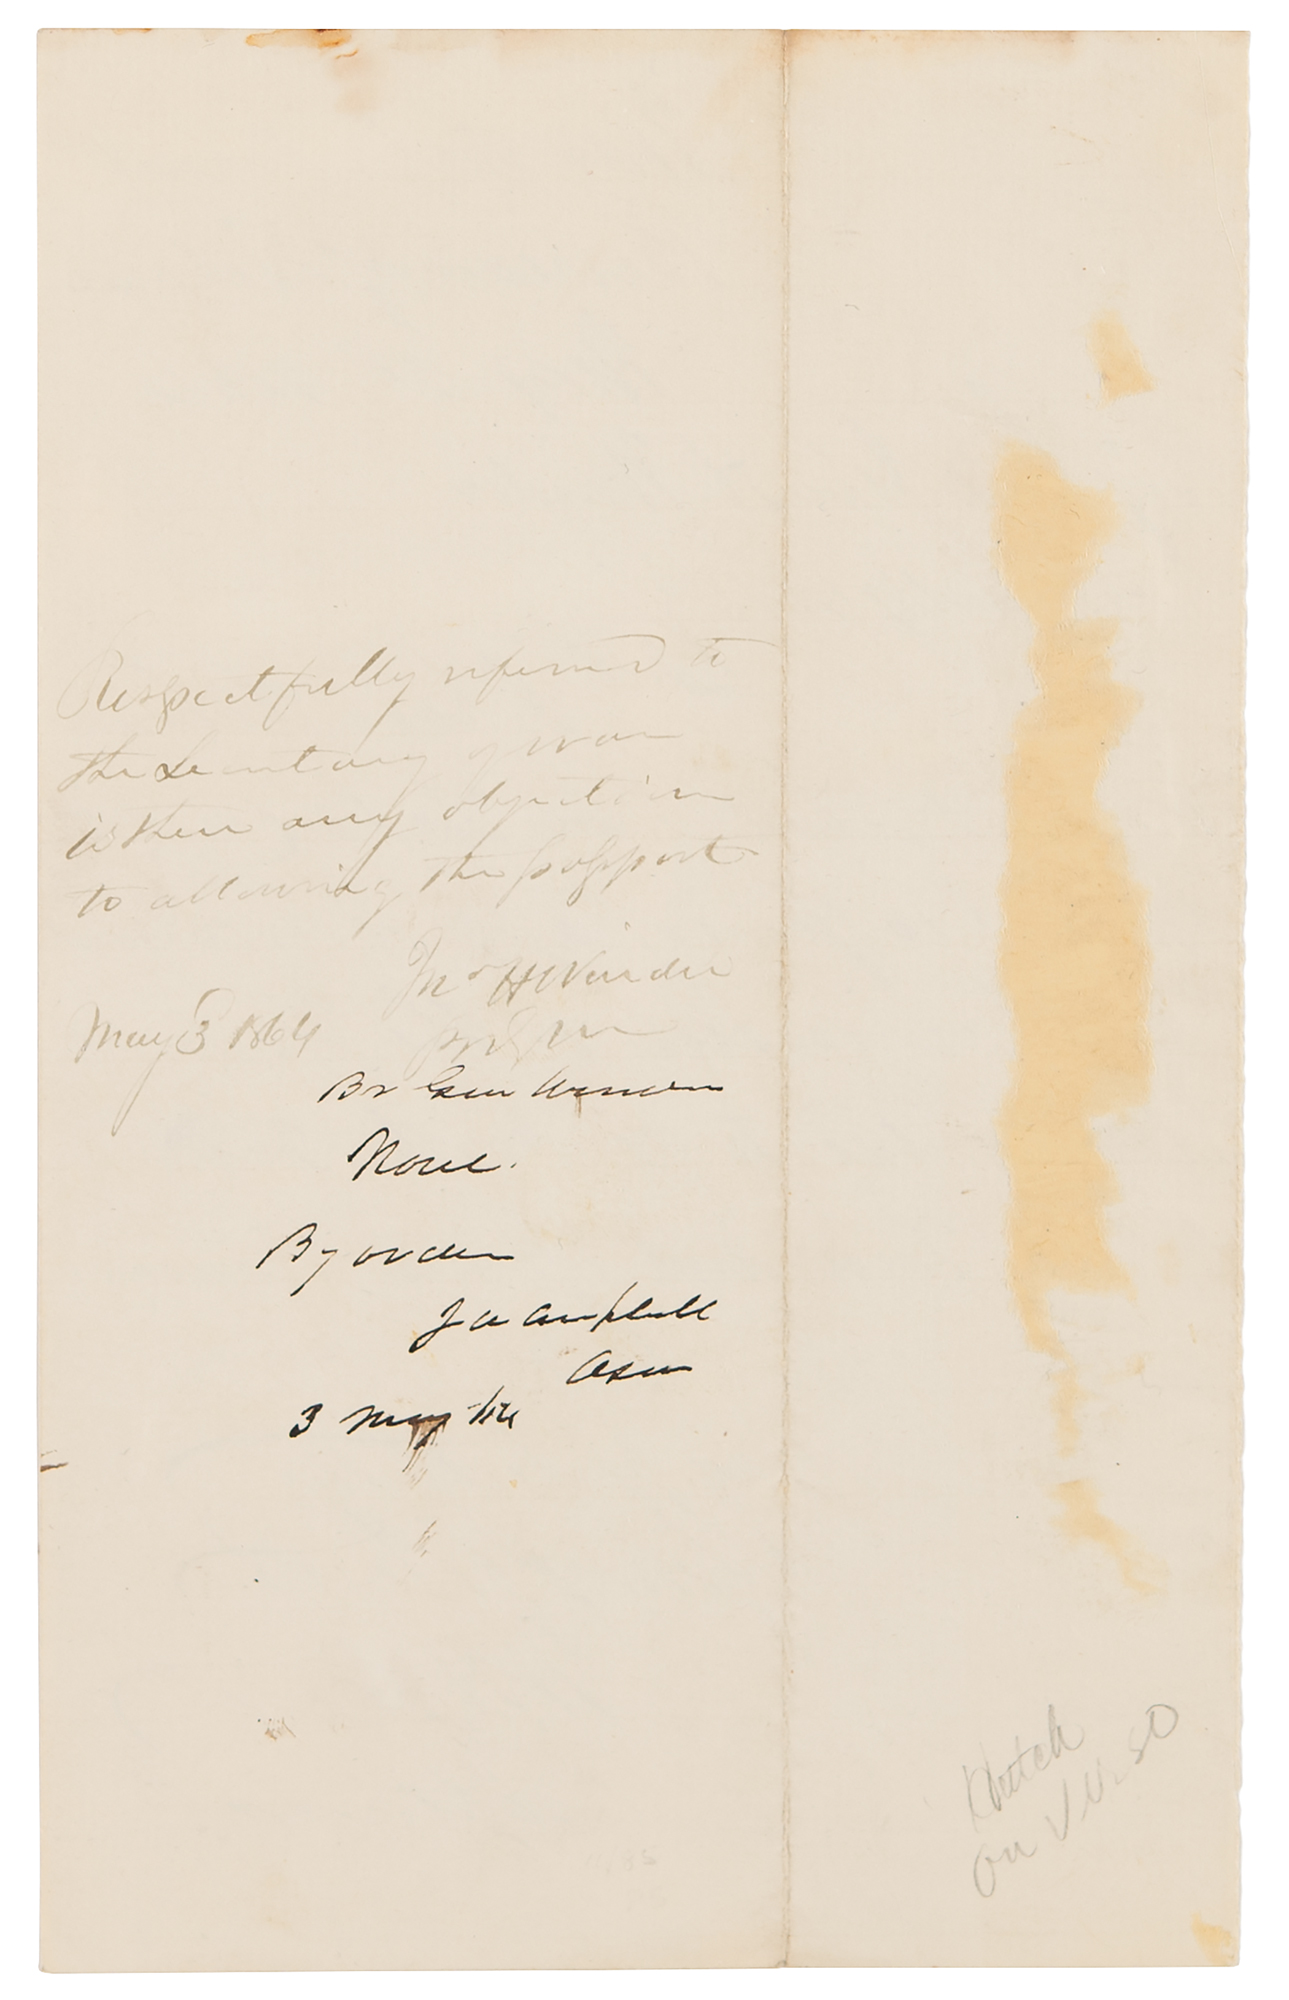 Respectfully referred to
the Secretary of war
is there any objection
to allowing the passport
Jno H Winder
Br Gen
May 3 1864
Br Gen Winder
None.
By order
J A Campbell
ASW
3 May 64
on verso